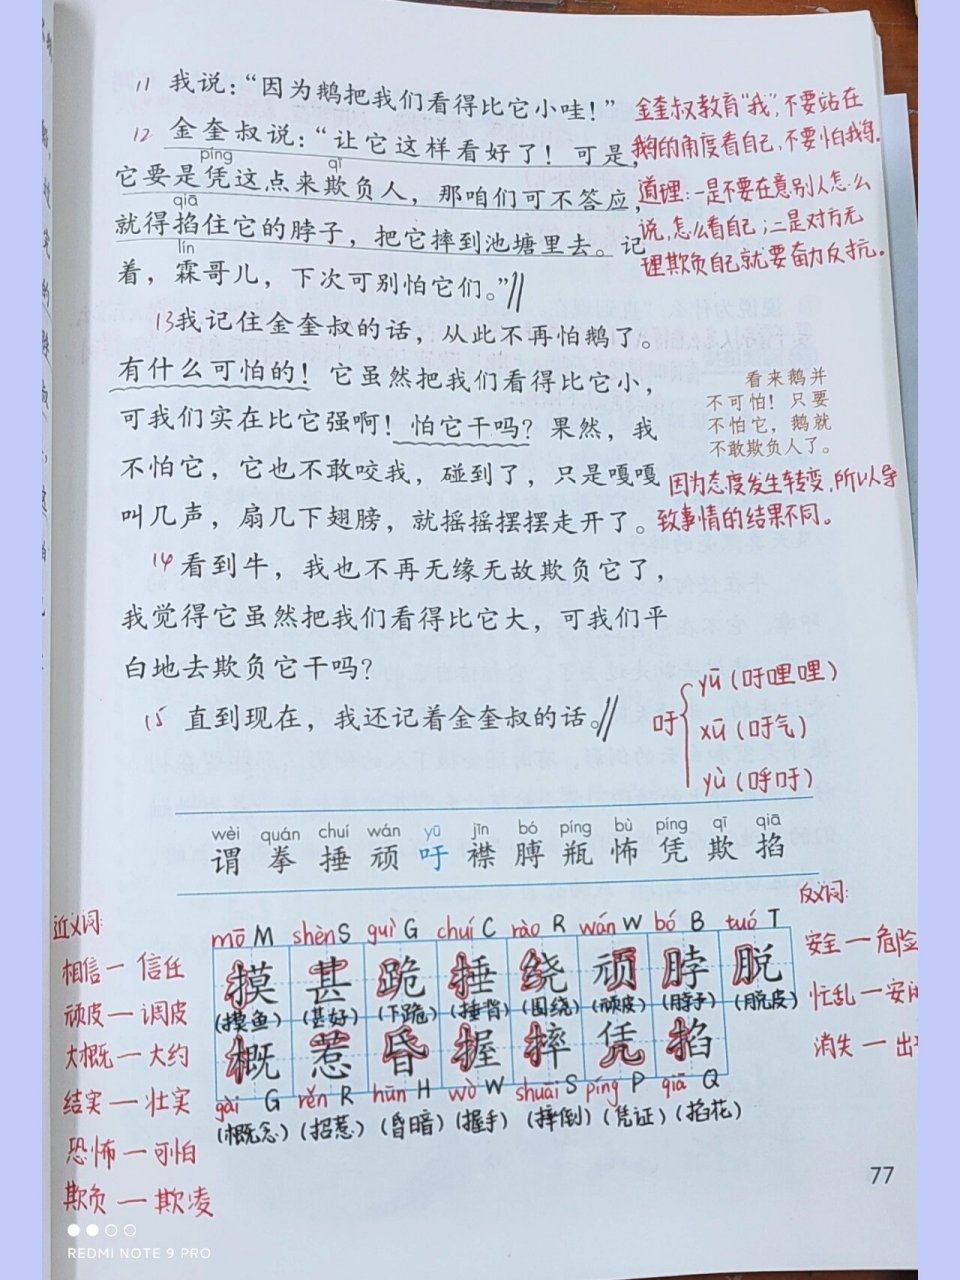 11 我说：“因为鹅把我们看得比它小哇！”
12 金奎叔说：“让它这样看好了！可是，
píng qī
它要是凭这点来欺负人，那咱们可不答应，
qiā
就得掐住它的脖子，把它摔到池塘里去。记
lín
着，霖哥儿，下次可别怕它们。”
金奎叔教育“我”，不要站在
鹅的角度看自己，不要怕我鹅。
道理：一是不要在意别人怎么
说，怎么看自己；二是对方无
理欺负自己就要奋力反抗。
13我记住金奎叔的话，从此不再怕鹅了。
有什么可怕的！它虽然把我们看得比它小，
可我们实在比它强啊！怕它干吗？果然，我
不怕它，它也不敢咬我，碰到了，只是嘎嘎
叫几声，扇几下翅膀，就摇摇摆摆走开了。
看来鹅并
不可怕！只要
不怕它，鹅就
不敢欺负人了。
因为态度发生转变，所以导
致事情的结果不同。
14 看到牛，我也不再无缘无故欺负它了，
我觉得它虽然把我们看得比它大，可我们平
白地去欺负它干吗？
15 直到现在，我还记着金奎叔的话。
吁
yū（吁哩哩）
xū（吁气）
yù（呼吁）
wèi quán chuí wán yū jīn bó píng bù píng qī qiā
谓 拳 捶 顽 吁 襟 膊 瓶 怖 凭 欺 掐
近义词：
相信一信任
顽皮一调皮
大概一大约
结实一壮实
恐怖一可怕
欺负一欺凌
mō M shèn S guì G chuí C rào R wán W bó B tuó T
摸 甚 跪 捶 绕 顽 脖 脱
（摸鱼）（甚好）（下跪）（捶背）（围绕）（顽皮）（脖子）（脱皮）
概 惹 昏 握 摔 凭 掐
gài G rěn R hūn H wò W shuāi S píng P qiā Q
（概念）（招惹）（昏暗）（握手）（摔倒）（凭证）（掐花）
反义词：
安全一危险
忙乱一安闲
消失一出
77
REDMI NOTE 9 PRO